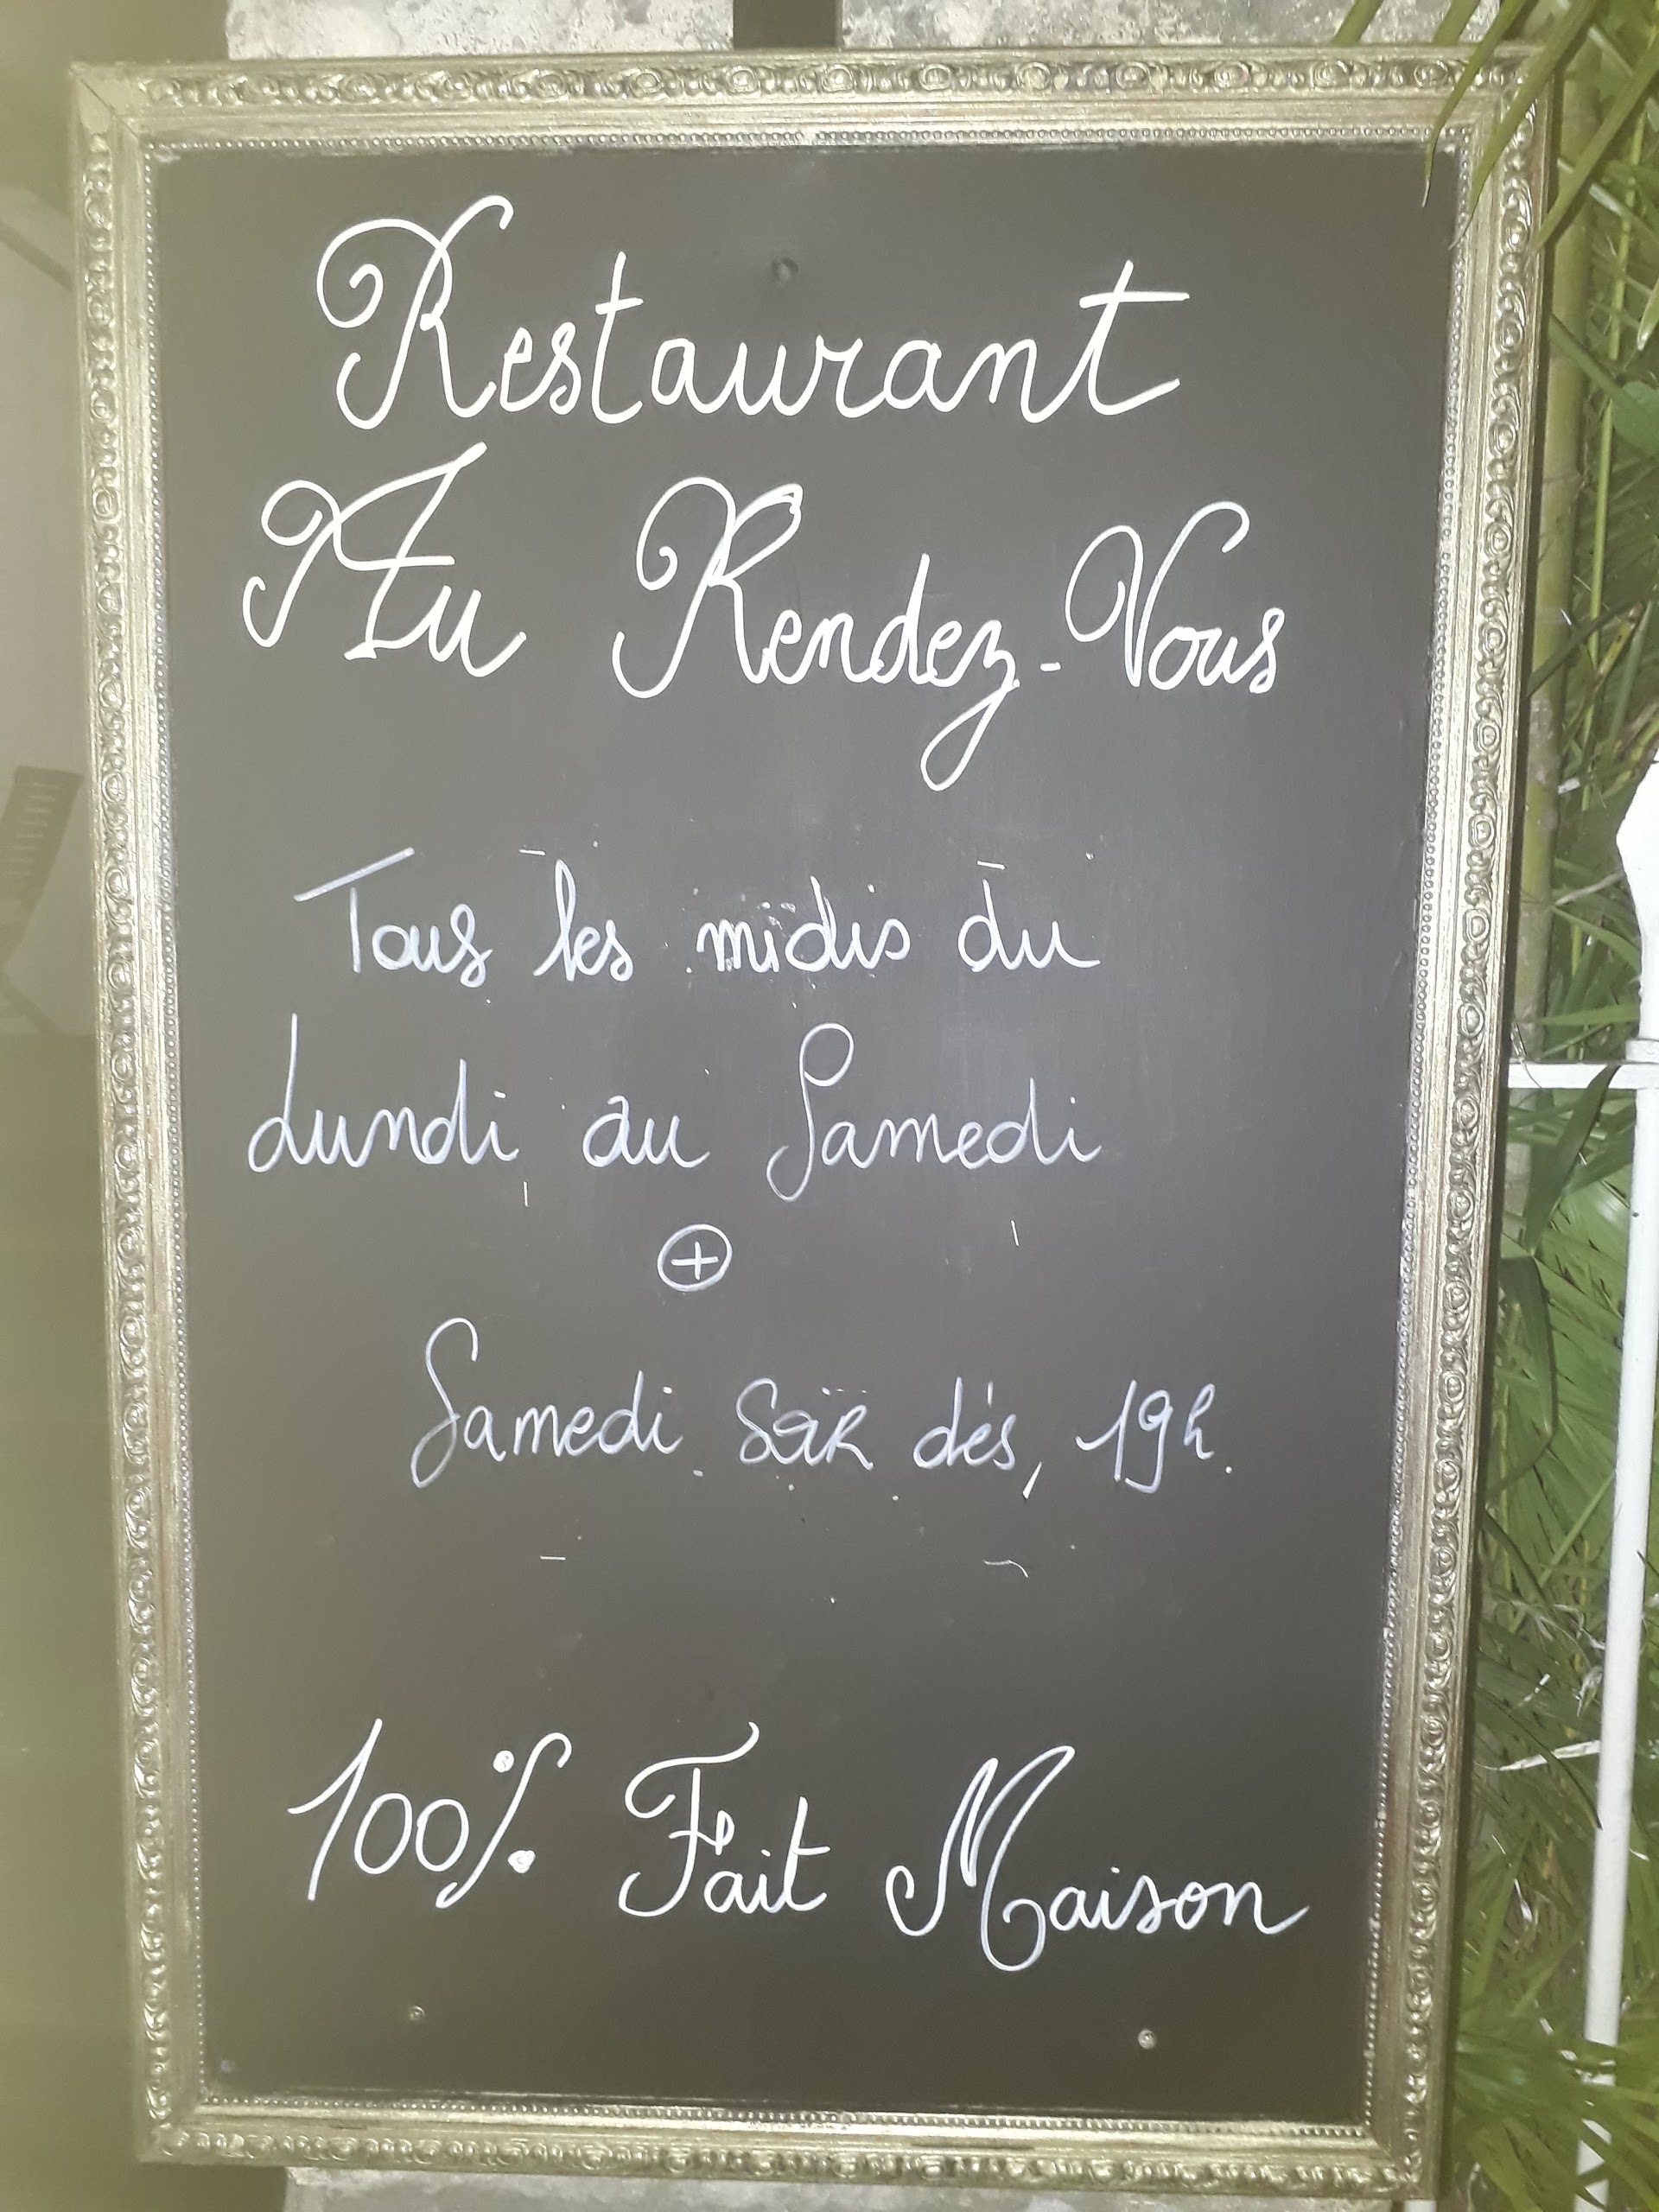 Restaurant
Au Rendez-Vous
Tous les midis du
Lundi au Samedi
+
Samedi soir dès 19h.
100% Fait Maison